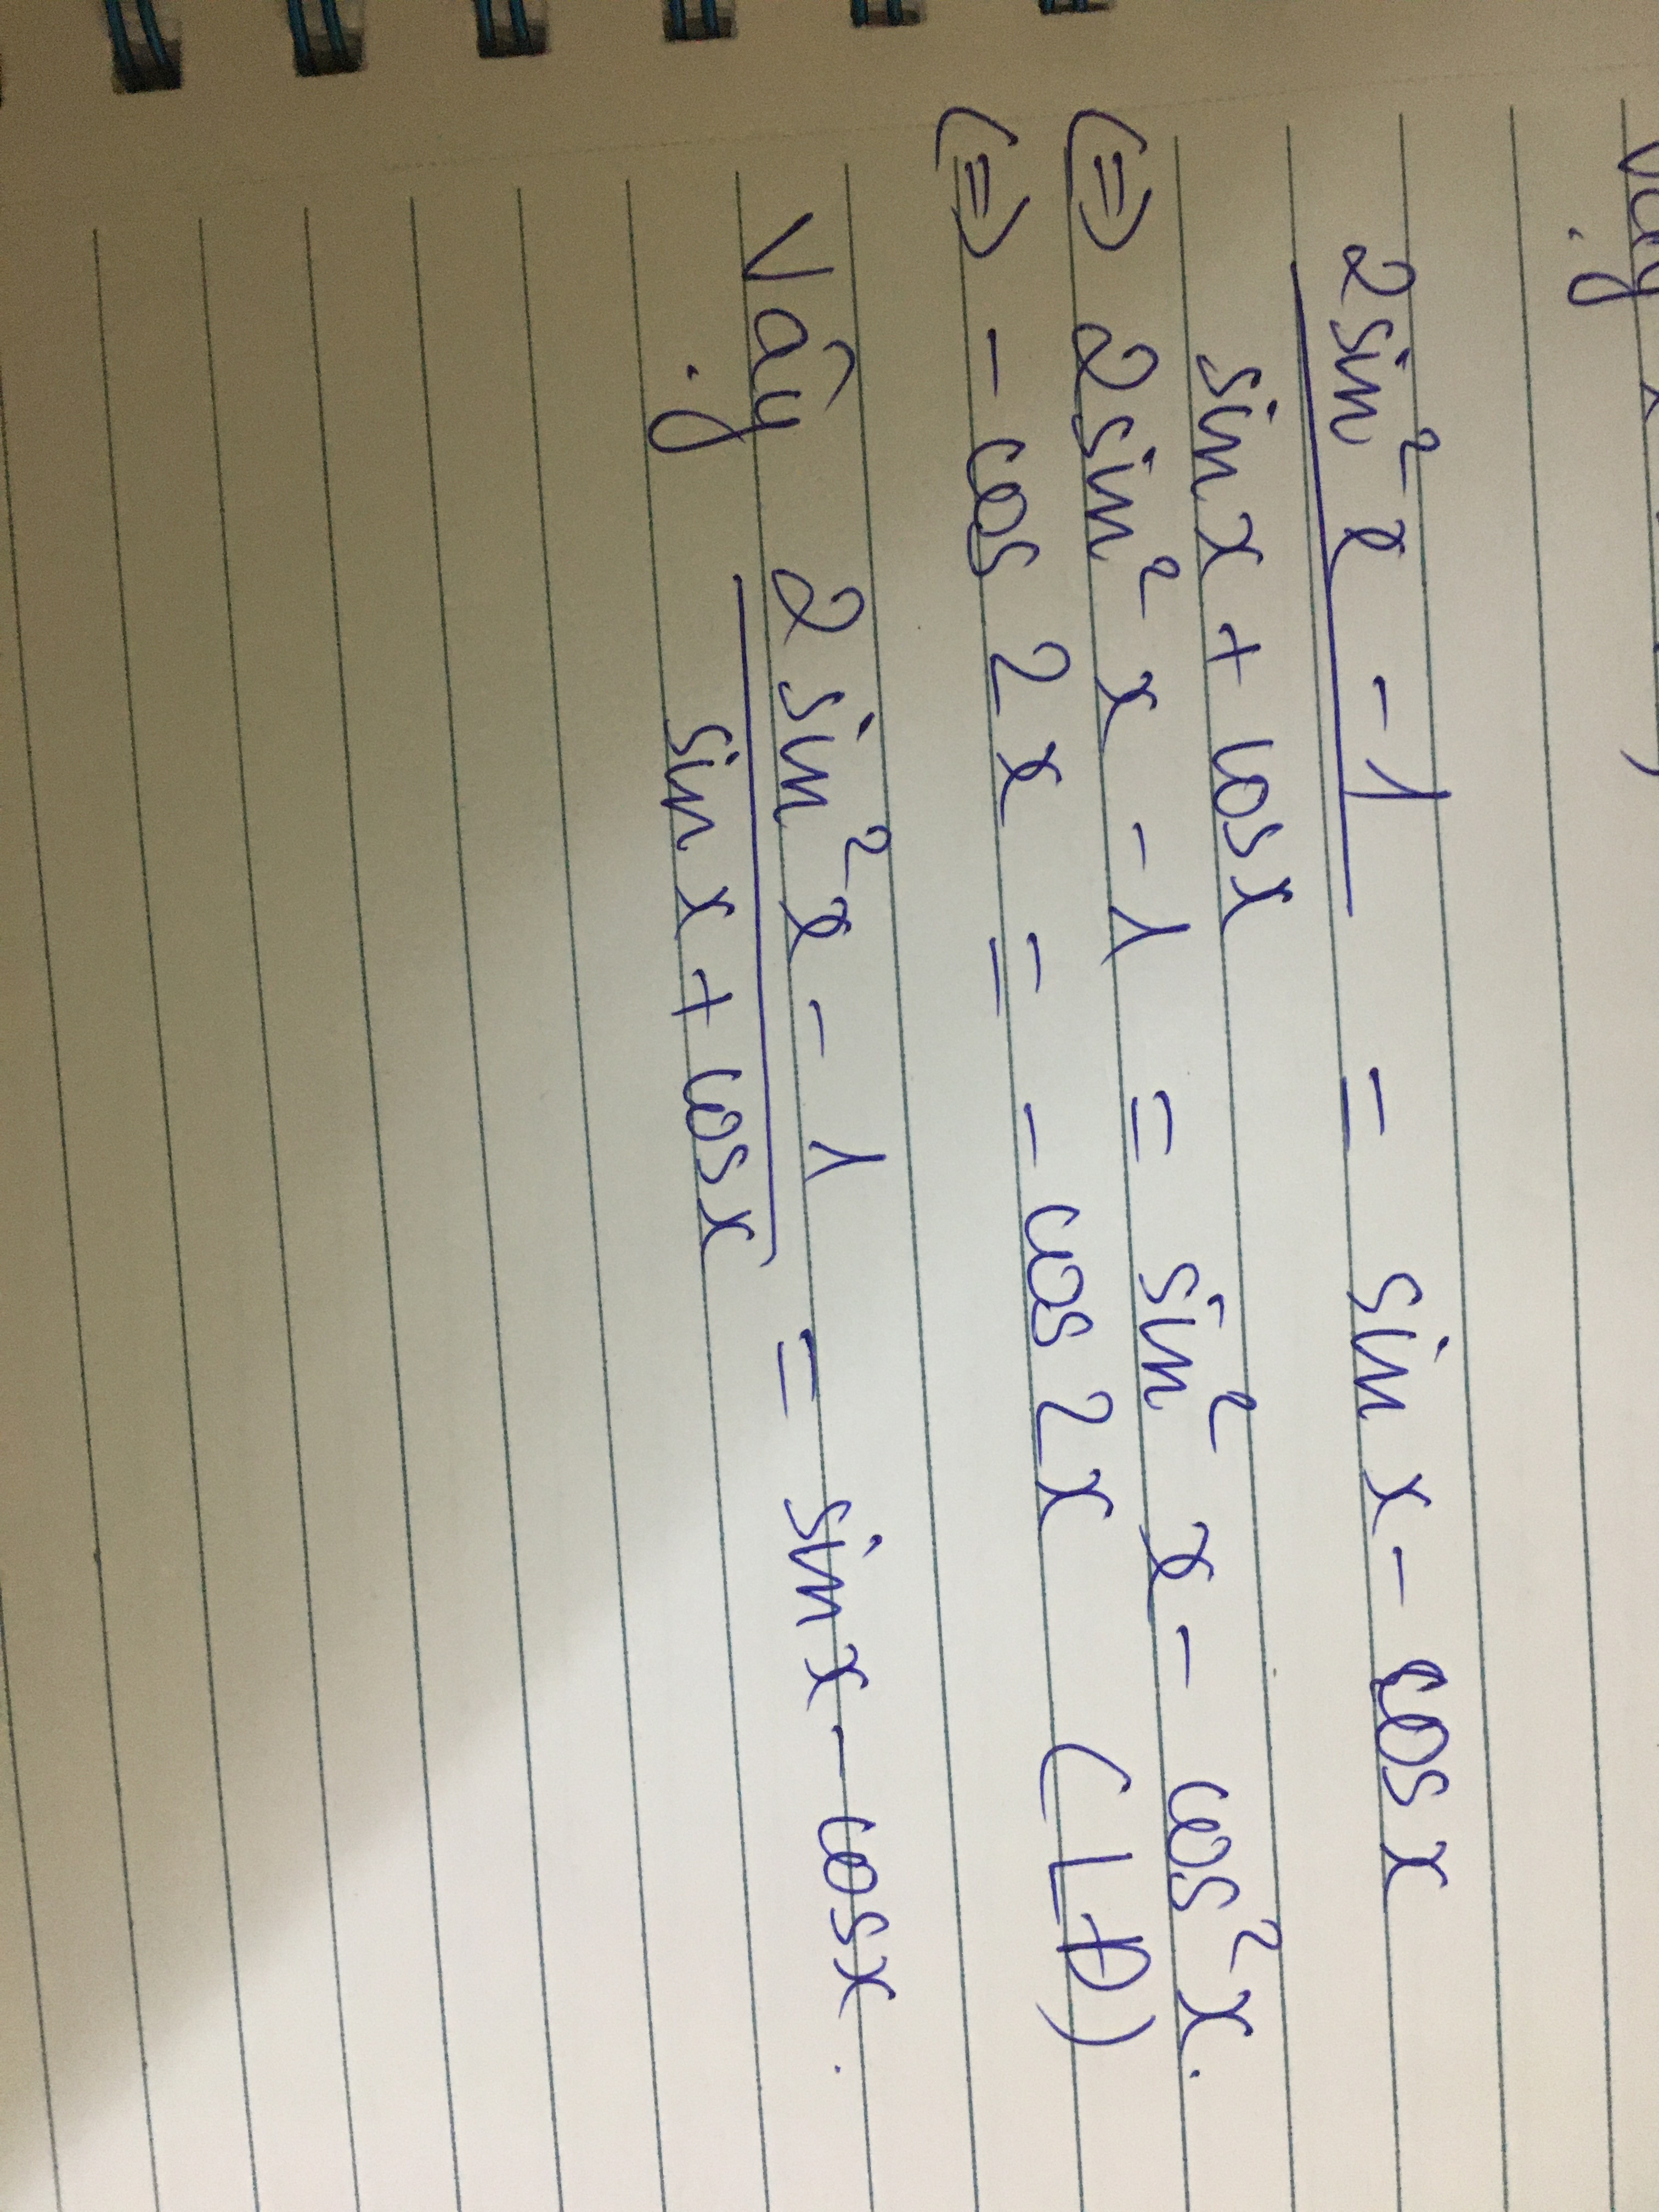 Vậy x
2sin²x - 1 = sin x - cos x
sin x + cos x
(=) 2sin²x - 1 = sin²x - cos²x.
(=) - cos 2x = - cos 2x (LĐ)
Vậy 2 sin²x - 1 = sin x - cos x.
sin x + cos x